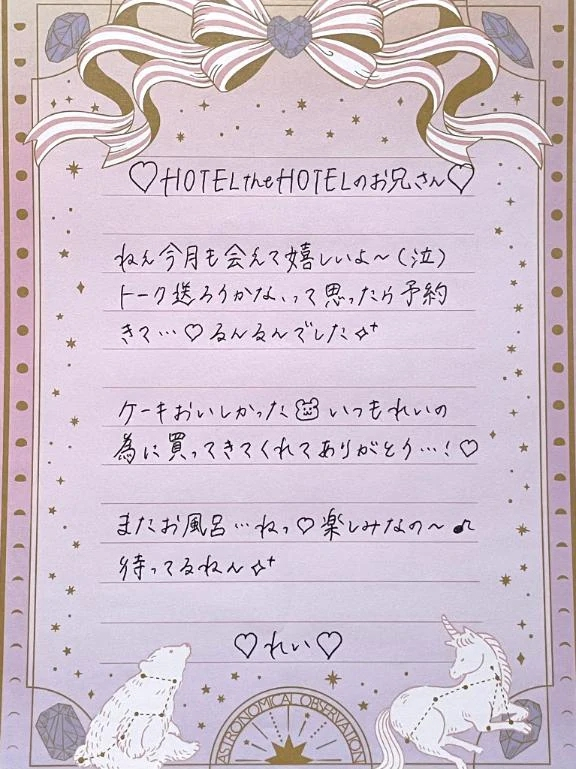 ♡HOTEL the HOTELのお兄さん♡
ねぇ今月も会えて嬉しいよ〜(泣)
トーク送ろうかなって思ったら予約
きて…♡るんるんでした✧⁺
ケーキおいしかった🐻いつもれいの
為に買ってきてくれてありがとう…!♡
またお風呂…ねっ♡楽しみなの〜♪
待ってるねん✧⁺
♡れい♡
ASTRONOMICAL OBSERVATION